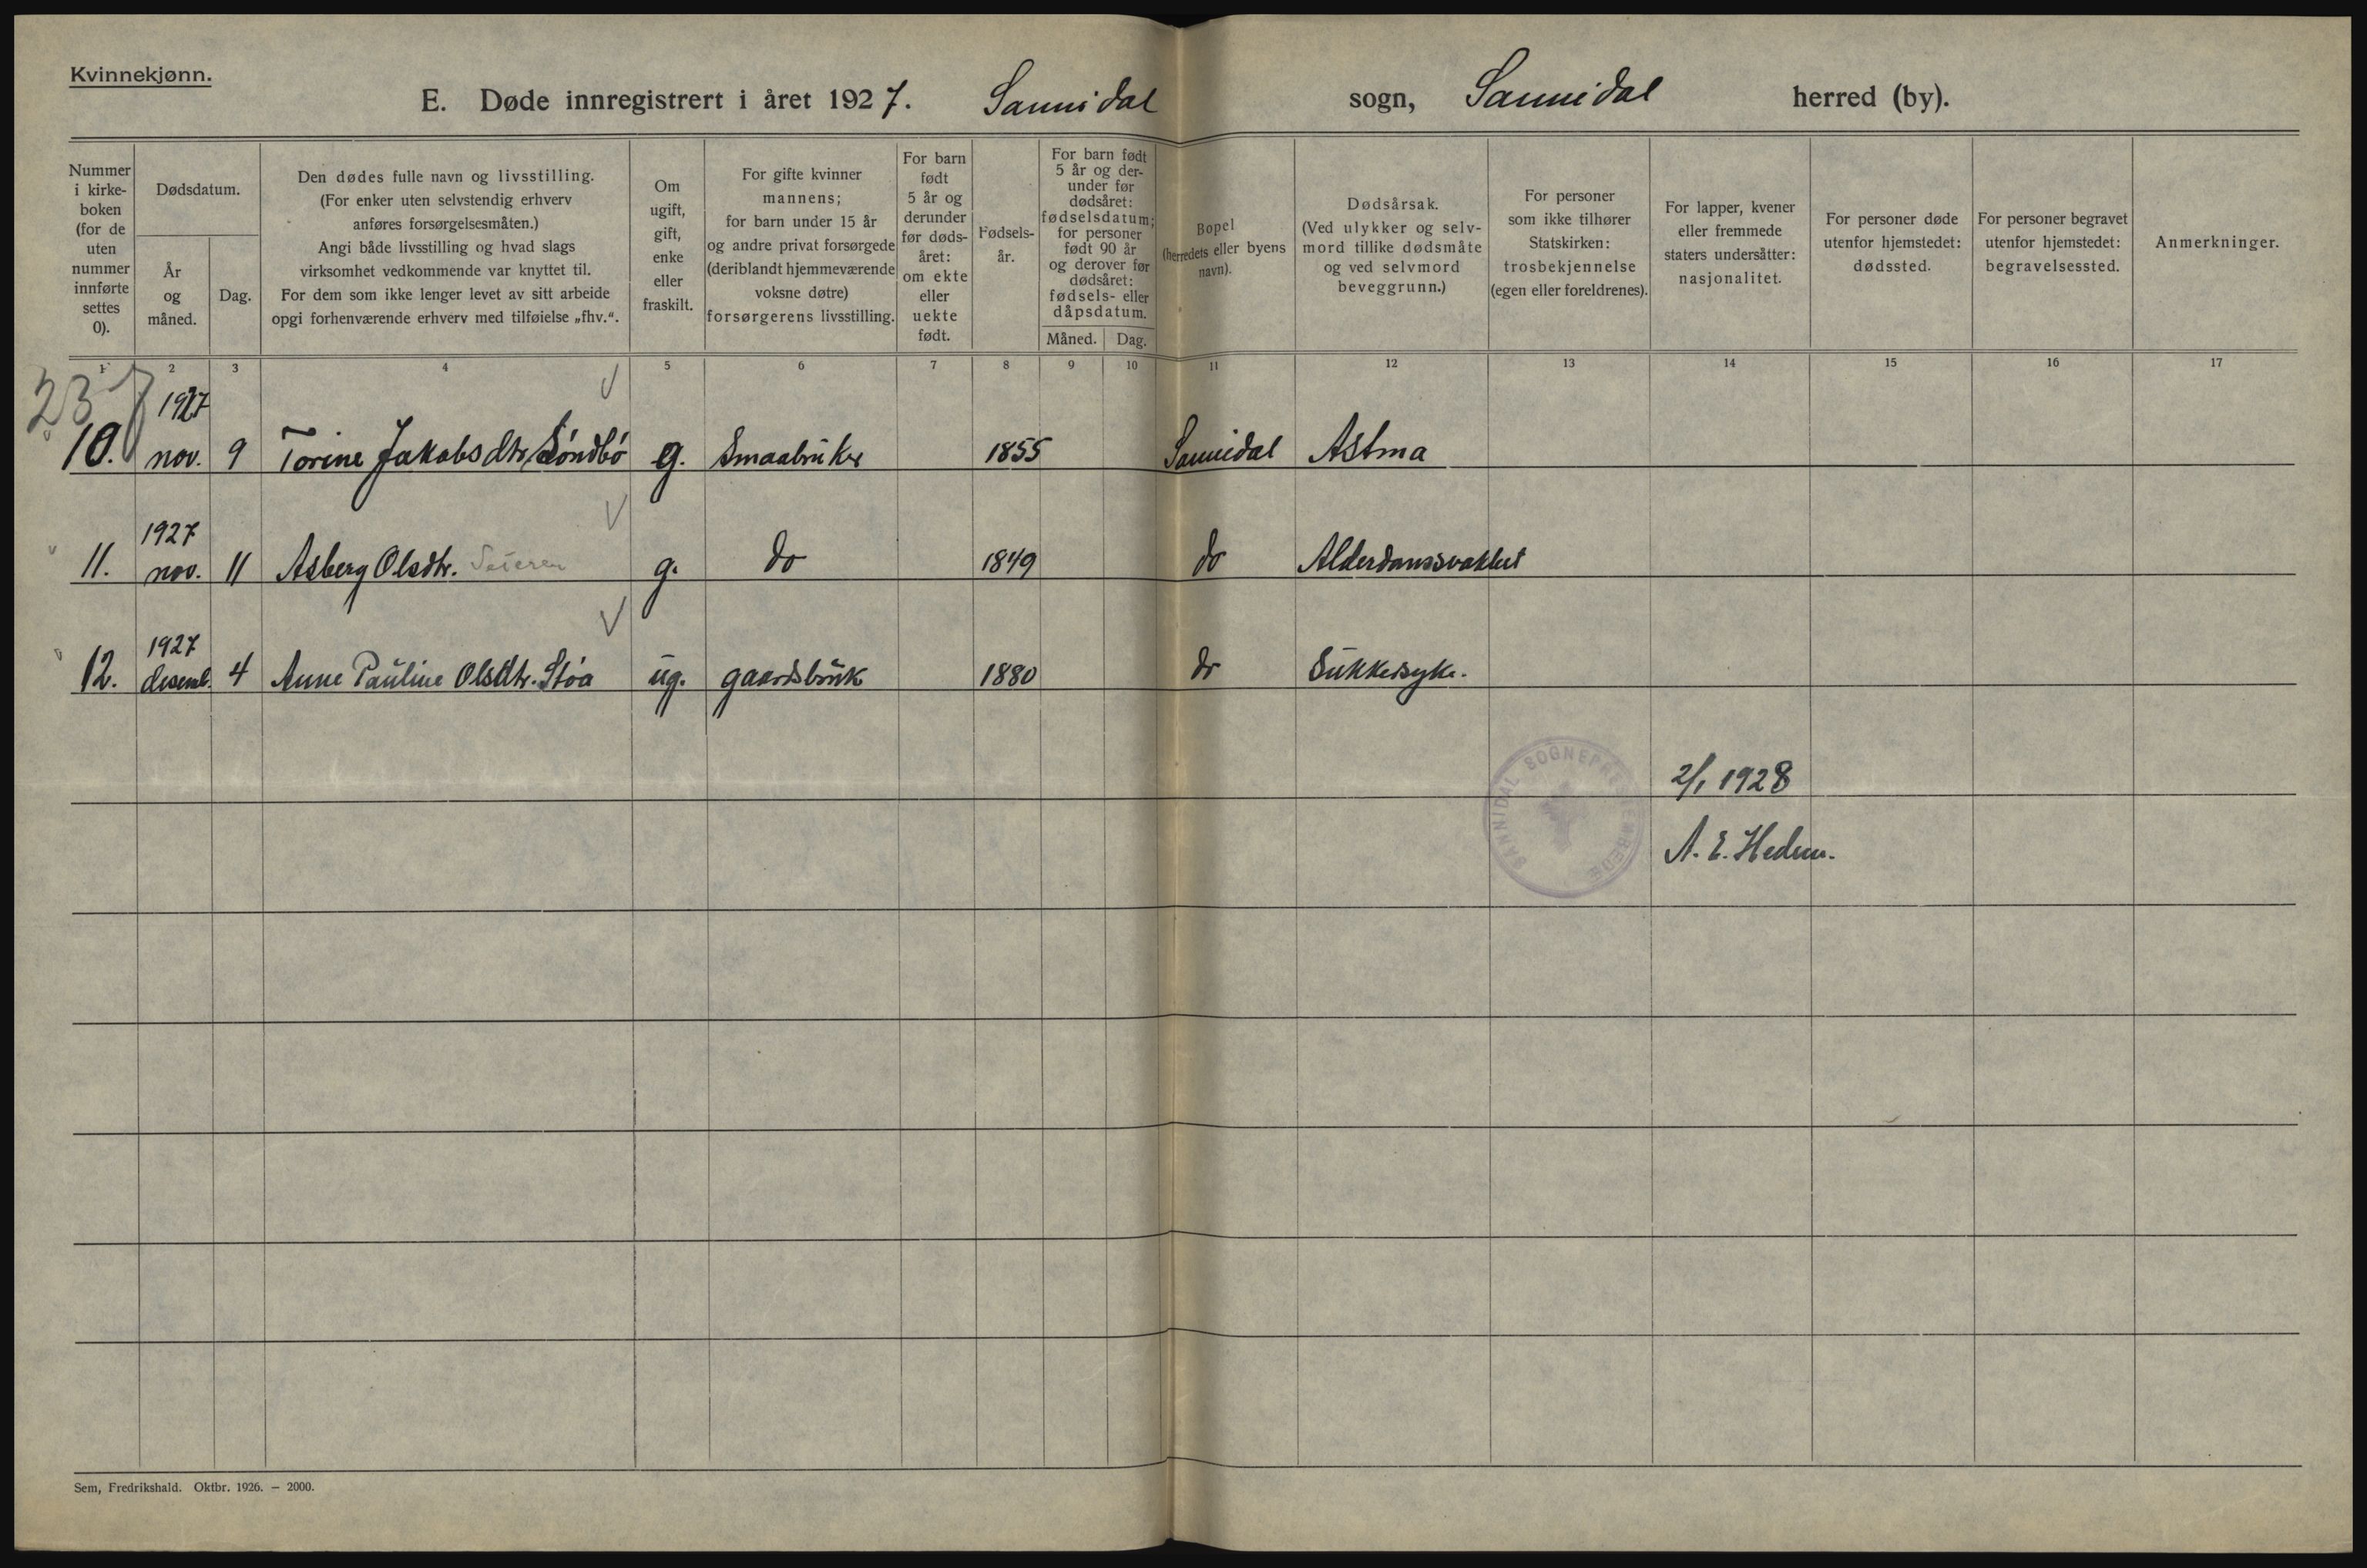 Kvinnekjønn.
E. Døde innregistrert i året 1927. Sannidal sogn, Sannidal herred (by).
Nummer
i kirke-
boken
(for de
uten
nummer
innførte
settes
0).
Dødsdatum.
År
og
måned.
Dag.
Den dødes fulle navn og livsstilling.
(For enker uten selvstendig erhverv
anføres forsørgelsesmåten.)
Angi både livsstilling og hvad slags
virksomhet vedkommende var knyttet til.
For dem som ikke lenger levet av sitt arbeide
opgi forhenværende erhverv med tilføielse „fhv.“.
Om
ugift,
gift,
enke
eller
fraskilt.
For gifte kvinner
mannens;
for barn under 15 år
og andre privat forsørgede
(deriblandt hjemmeværende
voksne døtre)
forsørgerens livsstilling.
For barn
født
5 år og
derunder
før døds-
året:
om ekte
eller
uekte
født.
Fødsels-
år.
For barn født
5 år og der-
under før
dødsåret:
fødselsdatum;
for personer
født 90 år
og derover før
dødsåret:
fødsels- eller
dåpsdatum.
Måned. Dag.
Bopel
(herredets eller byens
navn).
Dødsårsak.
(Ved ulykker og selv-
mord tillike dødsmåte
og ved selvmord
beveggrunn.)
For personer
som ikke tilhører
Statskirken:
trosbekjennelse
(egen eller foreldrenes).
For lapper, kvener
eller fremmede
staters undersåtter:
nasjonalitet.
For personer døde
utenfor hjemstedet:
dødssted.
For personer begravet
utenfor hjemstedet:
begravelsessted.
Anmerkninger.
1 2 3 4 5 6 7 8 9 10 11 12 13 14 15 16 17
237
1927
10. nov. 9 Torine Jakobsdtr. Söndbö g. Smaabruker 1855 Sannidal Astma
1927
11. nov. 11 Asberg Olsdtr. g. do 1849 do Alderdomssvakhet
1927
12. desemb. 4 Anne Pauline Olsdtr. Støa ug. gaardsbruk 1880 do Sukkersyke.
SANNIDAL SOGNEPRESTEMBEDE
2/1 1928
A. E. Hedem.
Sem, Fredrikshald. Oktbr. 1926. — 2000.